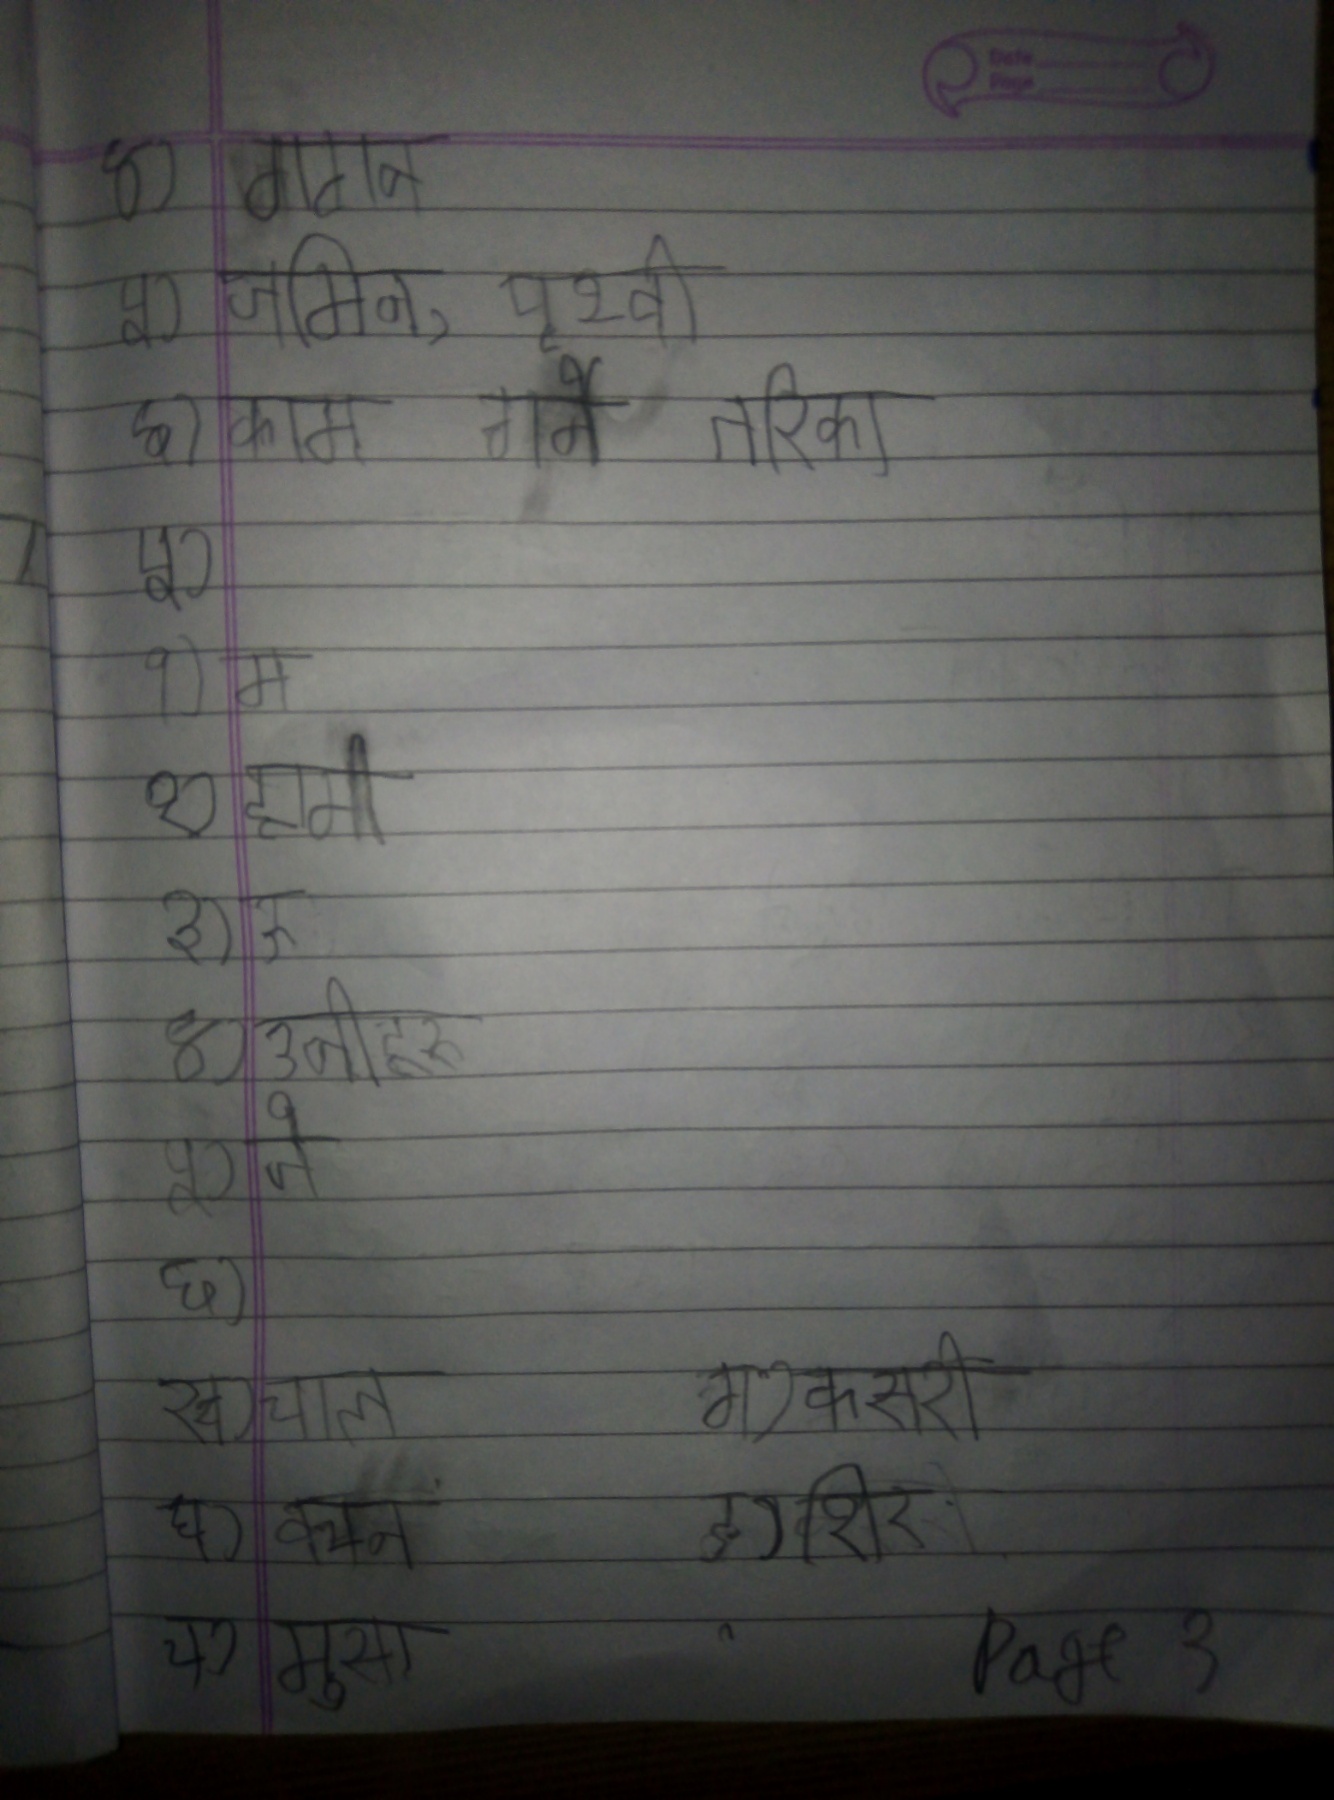 Date
Page
४) मातान
५) जमिन, पृथ्वी
६) काम गर्ने तरिका
५)
१) म
२) हामी
३) ऊ
४) उनीहरु
५) जे
६)
ख) चाल ग) कसरी
घ) वचन ङ) शिर
च) मुसा Page 3